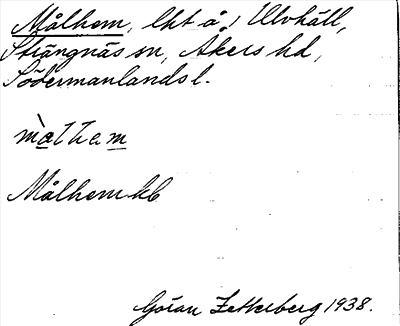 Målhem, lht å 1 Ulvhäll,
Strängnäs sn, Åkers hd,
Södermanlands l.
màlham
Målhem kb
Göran Zetterberg 1938.